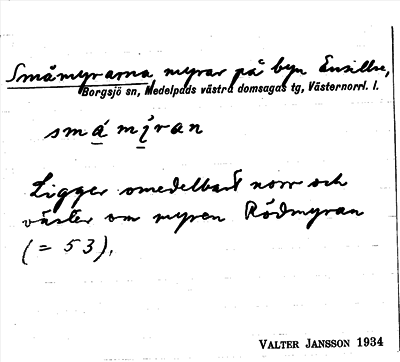 Småmyrarna, myrar på byn Ensillre,
Borgsjö sn, Medelpads västra domsagas tg, Västernorrl. l.
småmiran
Ligger omedelbart norr och
väster om myren Rödmyran
(= 53).
VALTER JANSSON 1934